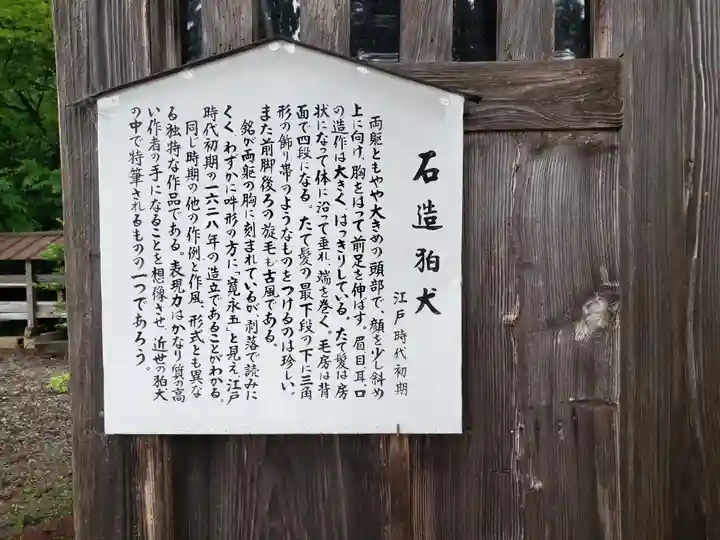 石造狛犬
江戸時代初期
両躯ともやや大きめの頭部で、顔を少し斜め
上に向け、胸をはって前足を伸ばす。眉目耳口
の造作は大きく、はっきりしている。たて髪は房
状になって体に沿って垂れ、端を巻く。毛房は背
面で四段になる。たて髪の最下段の下に三角
形の飾り帯のようなものをつけるのは珍しい。
また前脚後ろの旋毛も古風である。
銘が両躯の胸に刻まれているが、剥落で読みに
くく、わずかに吽形の方に「寛永五」と見え、江戸
時代初期の一六二八年の造立であることがわかる。
同じ時期の他の作例と作風、形式とも異な
る独特な作品である。表現力はかなり質の高
い作者の手になることを想像させ、近世の狛犬
の中で特筆されるものの一つであろう。